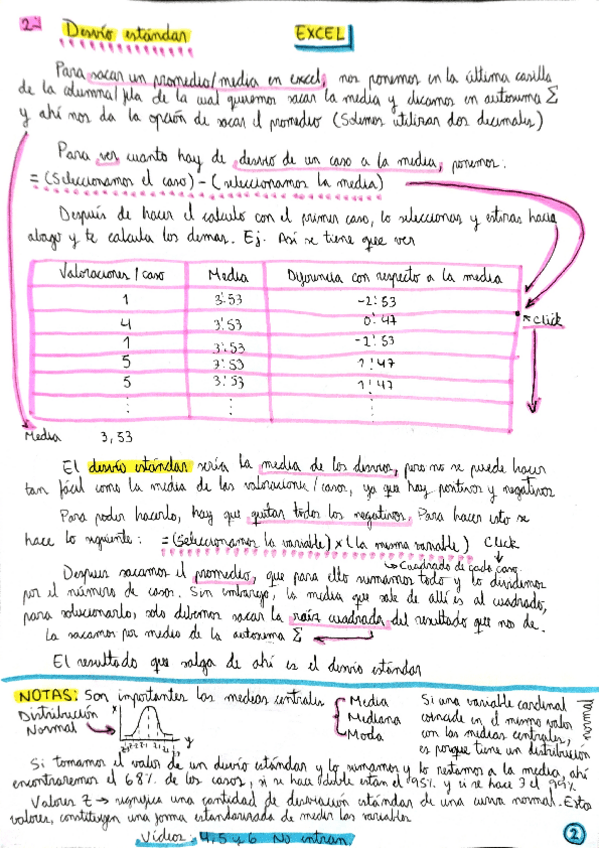 2- Desvío estándar EXCEL
Para sacar un promedio/media en excel, nos ponemos en la última casilla
de la columna/fila de la cual queremos sacar la media y clicamos en autosuma Σ
y ahí nos da la opción de sacar el promedio (Solemos utilizar dos decimales)
Para ver cuanto hay de desvio de un caso a la media, ponemos:
= (Seleccionamos el caso) - (seleccionamos la media)
Después de hacer el calculo con el primer caso, lo seleccionas y estiras hacia
abajo y te calcula los demas. Ej. Así se tiene que ver
Valoraciones / caso Media Diferencia con respecto a la media
1 3'53 -2'53
4 3'53 0'47
click
1 3'53 -2'53
5 3'53 1'47
5 3'53 1'47
⋮ ⋮ ⋮
Media 3,53
El desvío estándar sería la media de los desvios, pero no se puede hacer
tan fácil como la media de las valoraciones/casos, ya que hay positivos y negativos
Para poder hacerlo, hay que quitar todos los negativos. Para hacer esto se
hace lo siguiente: = (Seleccionamos la variable) x (la misma variable) Click
↳ Cuadrado de cada caso.
Despues sacamos el promedio, que para ello sumamos todo y lo dividimos
por el número de casos. Sin embargo, la media que sale de allí es al cuadrado,
para solucionarlo, solo debemos sacar la raíz cuadrada del resultado que nos de.
La sacamos por medio de la autosuma Σ
El resultado que salga de ahí es el desvio estándar
NOTAS: Son importantes las medias centrales
Media
Mediana
Moda
Distribución
Normal
x
y
Si una variable cardinal
coincide en el mismo valor
con las medias centrales,
es porque tiene un distribución
normal
Si tomamos el valor de un desvío estándar y lo sumamos y lo restamos a la media, ahí
encontraremos el 68% de los casos, si se hace doble están el 95% y si se hace 3 el 99%
Valores Z → significa una cantidad de desviación estándar de una curva normal. Estos
valores, constituyen una forma estandarizada de medir las variables
Vídeos: 4, 5 y 6 No entran.
2